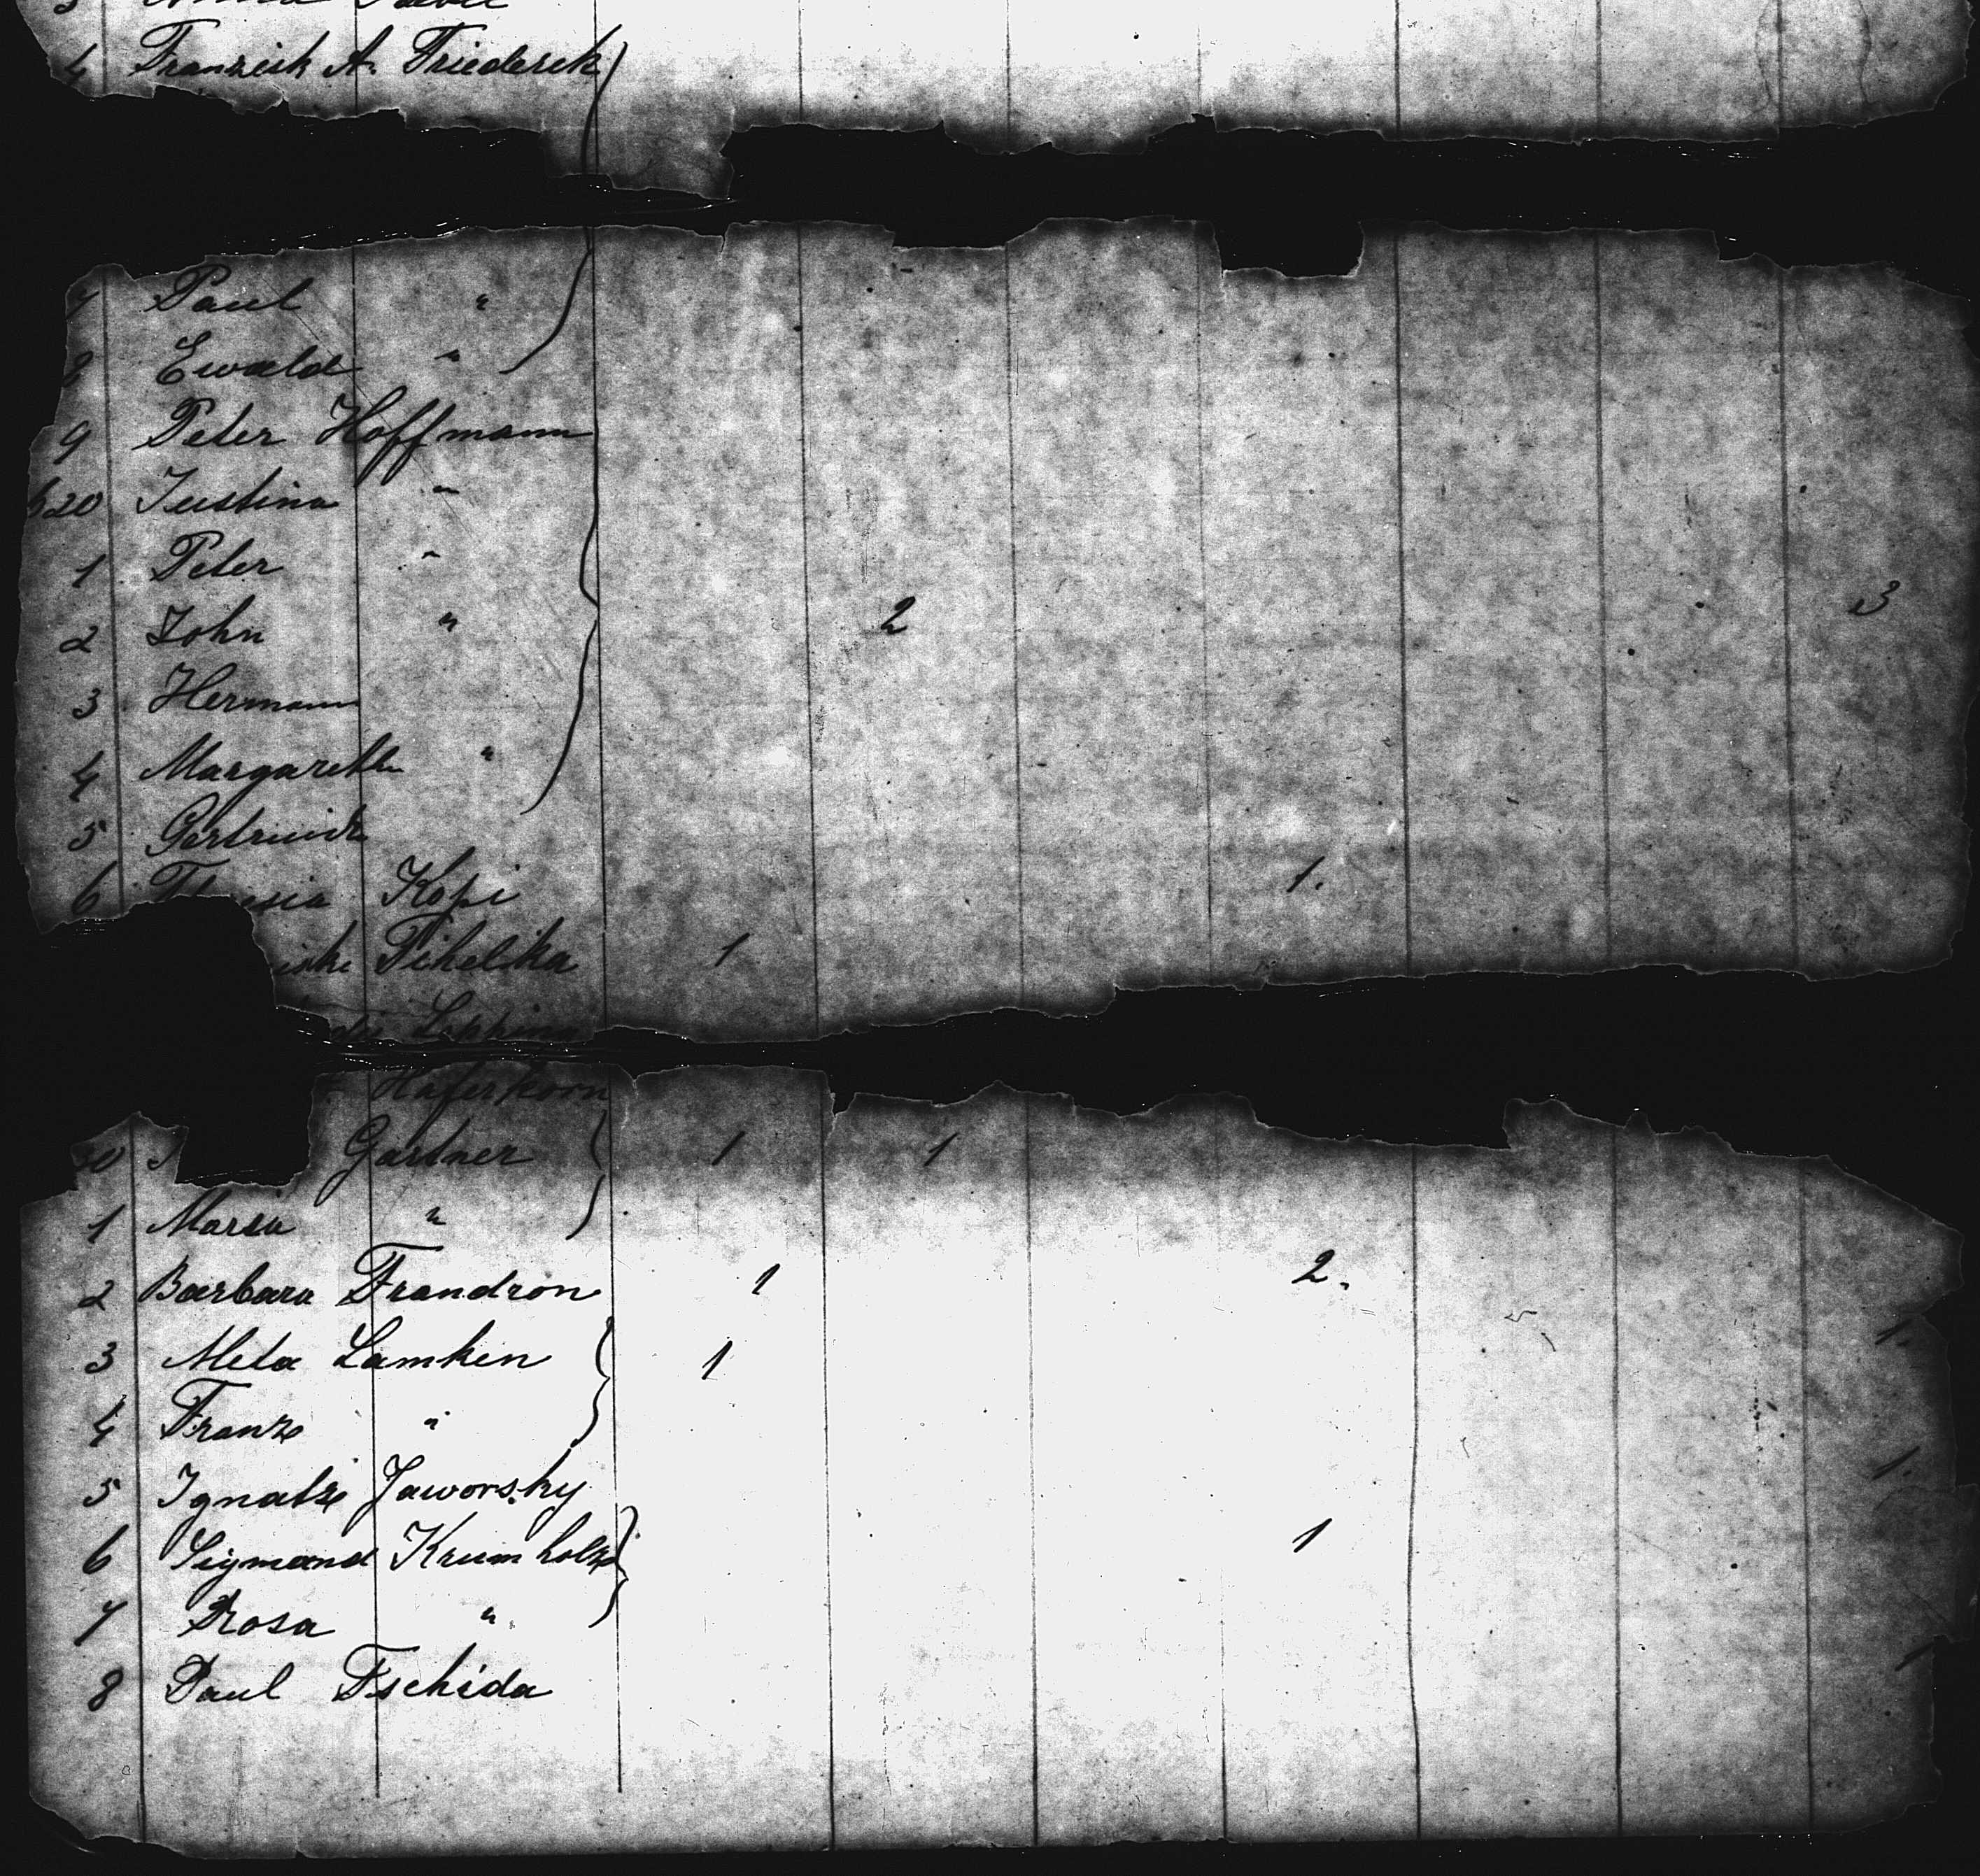 4 Franzisk A. Friederick
7 Paul "
8 Ewald "
9 Peter Hoffmann
620 Justina "
1 Peter "
2 John " 2 3
3 Hermann
4 Margarethe "
5 Gertruide
6 Kopi 1.
Tichelka 1
Haferkorn
30 Gartner 1 1
1 Maria "
2 Barbara Frandron 1 2.
3 Meta Lamken 1 1.
4 Franz "
5 Ignatz Jaworsky 1.
6 Sigmand Krumholz 1
7 Rosa "
8 Paul Tschida 1